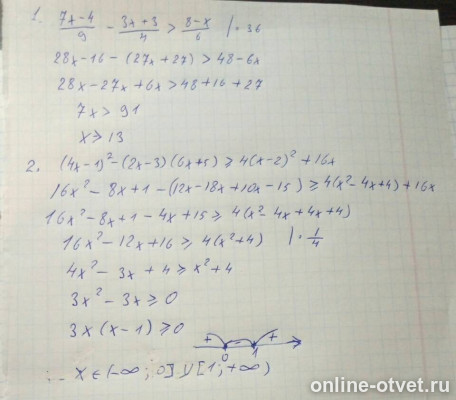 1. (7x-4)/9 - (3x+3)/4 > (8-x)/6 | · 36
28x-16-(27x+27)>48-6x
28x-27x+6x>48+16+27
7x>91
x≥13
2. (4x-1)²-(2x-3)(6x+5)≥4(x-2)²+16x
16x²-8x+1-(12x-18x+10x-15)≥4(x²-4x+4)+16x
16x²-8x+1-4x+15≥4(x²-4x+4x+4)
16x²-12x+16≥4(x²+4) | · 1/4
4x²-3x+4≥x²+4
3x²-3x≥0
3x(x-1)≥0
+ - + 0 1
x∈(-∞;0]∪[1;+∞)
online-otvet.ru